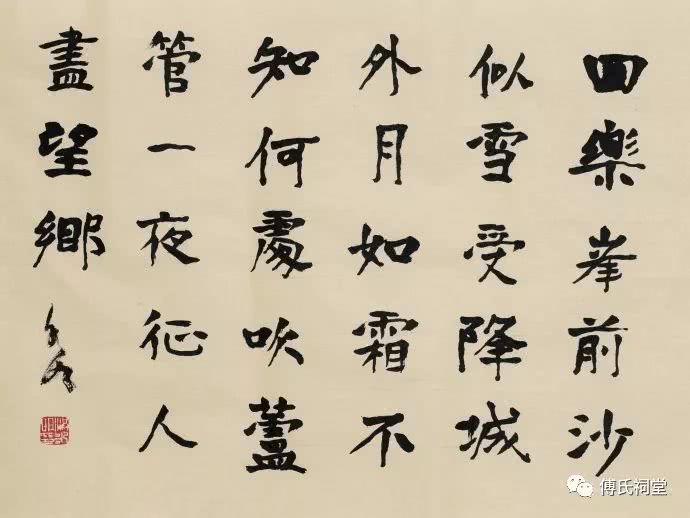 回樂峯前沙
似雪受降城
外月如霜不
知何處吹蘆
管一夜征人
盡望鄉
傅氏祠堂